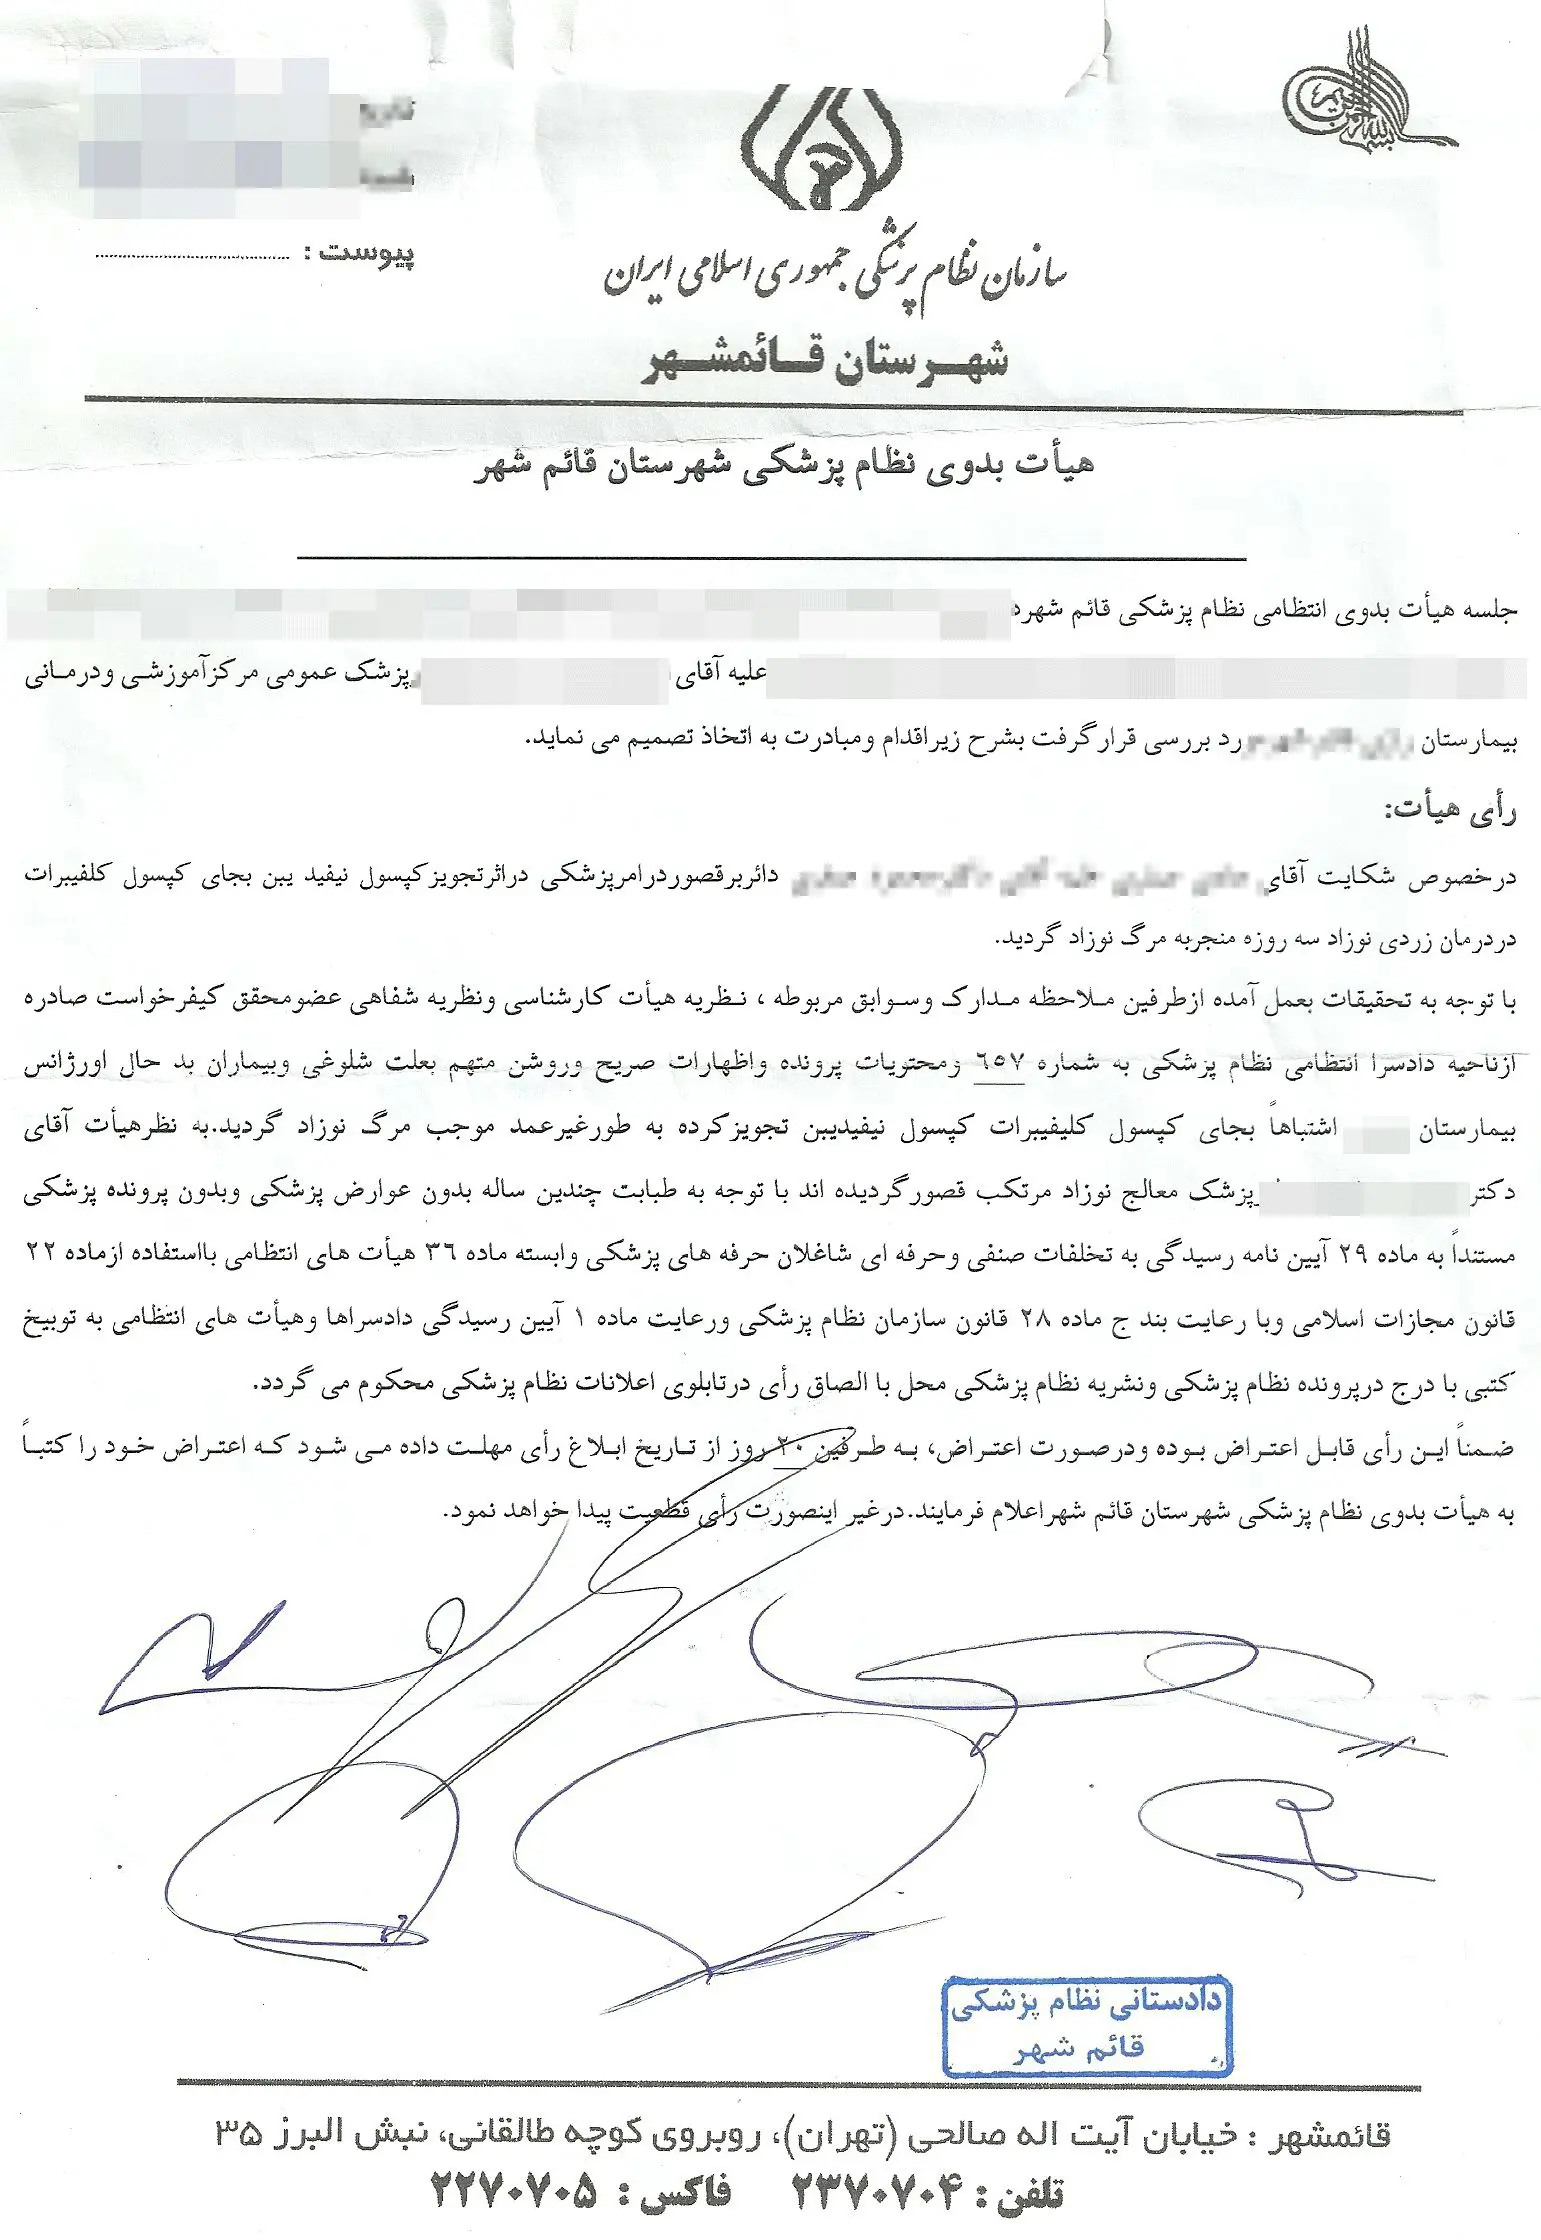 پیوست : ............................
سازمان نظام پزشکی جمهوری اسلامی ایران
شهرستان قائمشهر
هیأت بدوی نظام پزشکی شهرستان قائم شهر
جلسه هیأت بدوی انتظامی نظام پزشکی قائم شهرد
علیه آقای پزشک عمومی مرکزآموزشی ودرمانی
بیمارستان رد بررسی قرارگرفت بشرح زیراقدام ومبادرت به اتخاذ تصمیم می نماید.
رأی هیأت:
درخصوص شکایت آقای دائربرقصوردرامرپزشکی دراثرتجویزکپسول نیفید یبن بجای کپسول کلفیبرات
دردرمان زردی نوزاد سه روزه منجربه مرگ نوزاد گردید.
با توجه به تحقیقات بعمل آمده ازطرفین ملاحظه مدارک وسوابق مربوطه ، نظریه هیأت کارشناسی ونظریه شفاهی عضومحقق کیفرخواست صادره
ازناحیه دادسرا انتظامی نظام پزشکی به شماره ٦٥٧ ومحتویات پرونده واظهارات صریح وروشن متهم بعلت شلوغی وبیماران بد حال اورژانس
بیمارستان اشتباهاً بجای کپسول کلیفیبرات کپسول نیفیدیبن تجویزکرده به طورغیرعمد موجب مرگ نوزاد گردید.به نظرهیأت آقای
دکتر پزشک معالج نوزاد مرتکب قصورگردیده اند با توجه به طبابت چندین ساله بدون عوارض پزشکی وبدون پرونده پزشکی
مستنداً به ماده ٢٩ آیین نامه رسیدگی به تخلفات صنفی وحرفه ای شاغلان حرفه های پزشکی وابسته ماده ٣٦ هیأت های انتظامی بااستفاده ازماده ٢٢
قانون مجازات اسلامی وبا رعایت بند ج ماده ٢٨ قانون سازمان نظام پزشکی ورعایت ماده ١ آیین رسیدگی دادسراها وهیأت های انتظامی به توبیخ
کتبی با درج درپرونده نظام پزشکی ونشریه نظام پزشکی محل با الصاق رأی درتابلوی اعلانات نظام پزشکی محکوم می گردد.
ضمناً این رأی قابل اعتراض بوده ودرصورت اعتراض، به طرفین ٢٠ روز از تاریخ ابلاغ رأی مهلت داده می شود که اعتراض خود را کتباً
به هیأت بدوی نظام پزشکی شهرستان قائم شهراعلام فرمایند.درغیر اینصورت رأی قطعیت پیدا خواهد نمود.
دادستانی نظام پزشکی
قائم شهر
قائمشهر : خیابان آیت اله صالحی (تهران)، روبروی کوچه طالقانی، نبش البرز ۳۵
تلفن : ۲۳۷۰۷۰۴ فاکس : ۲۲۷۰۷۰۵